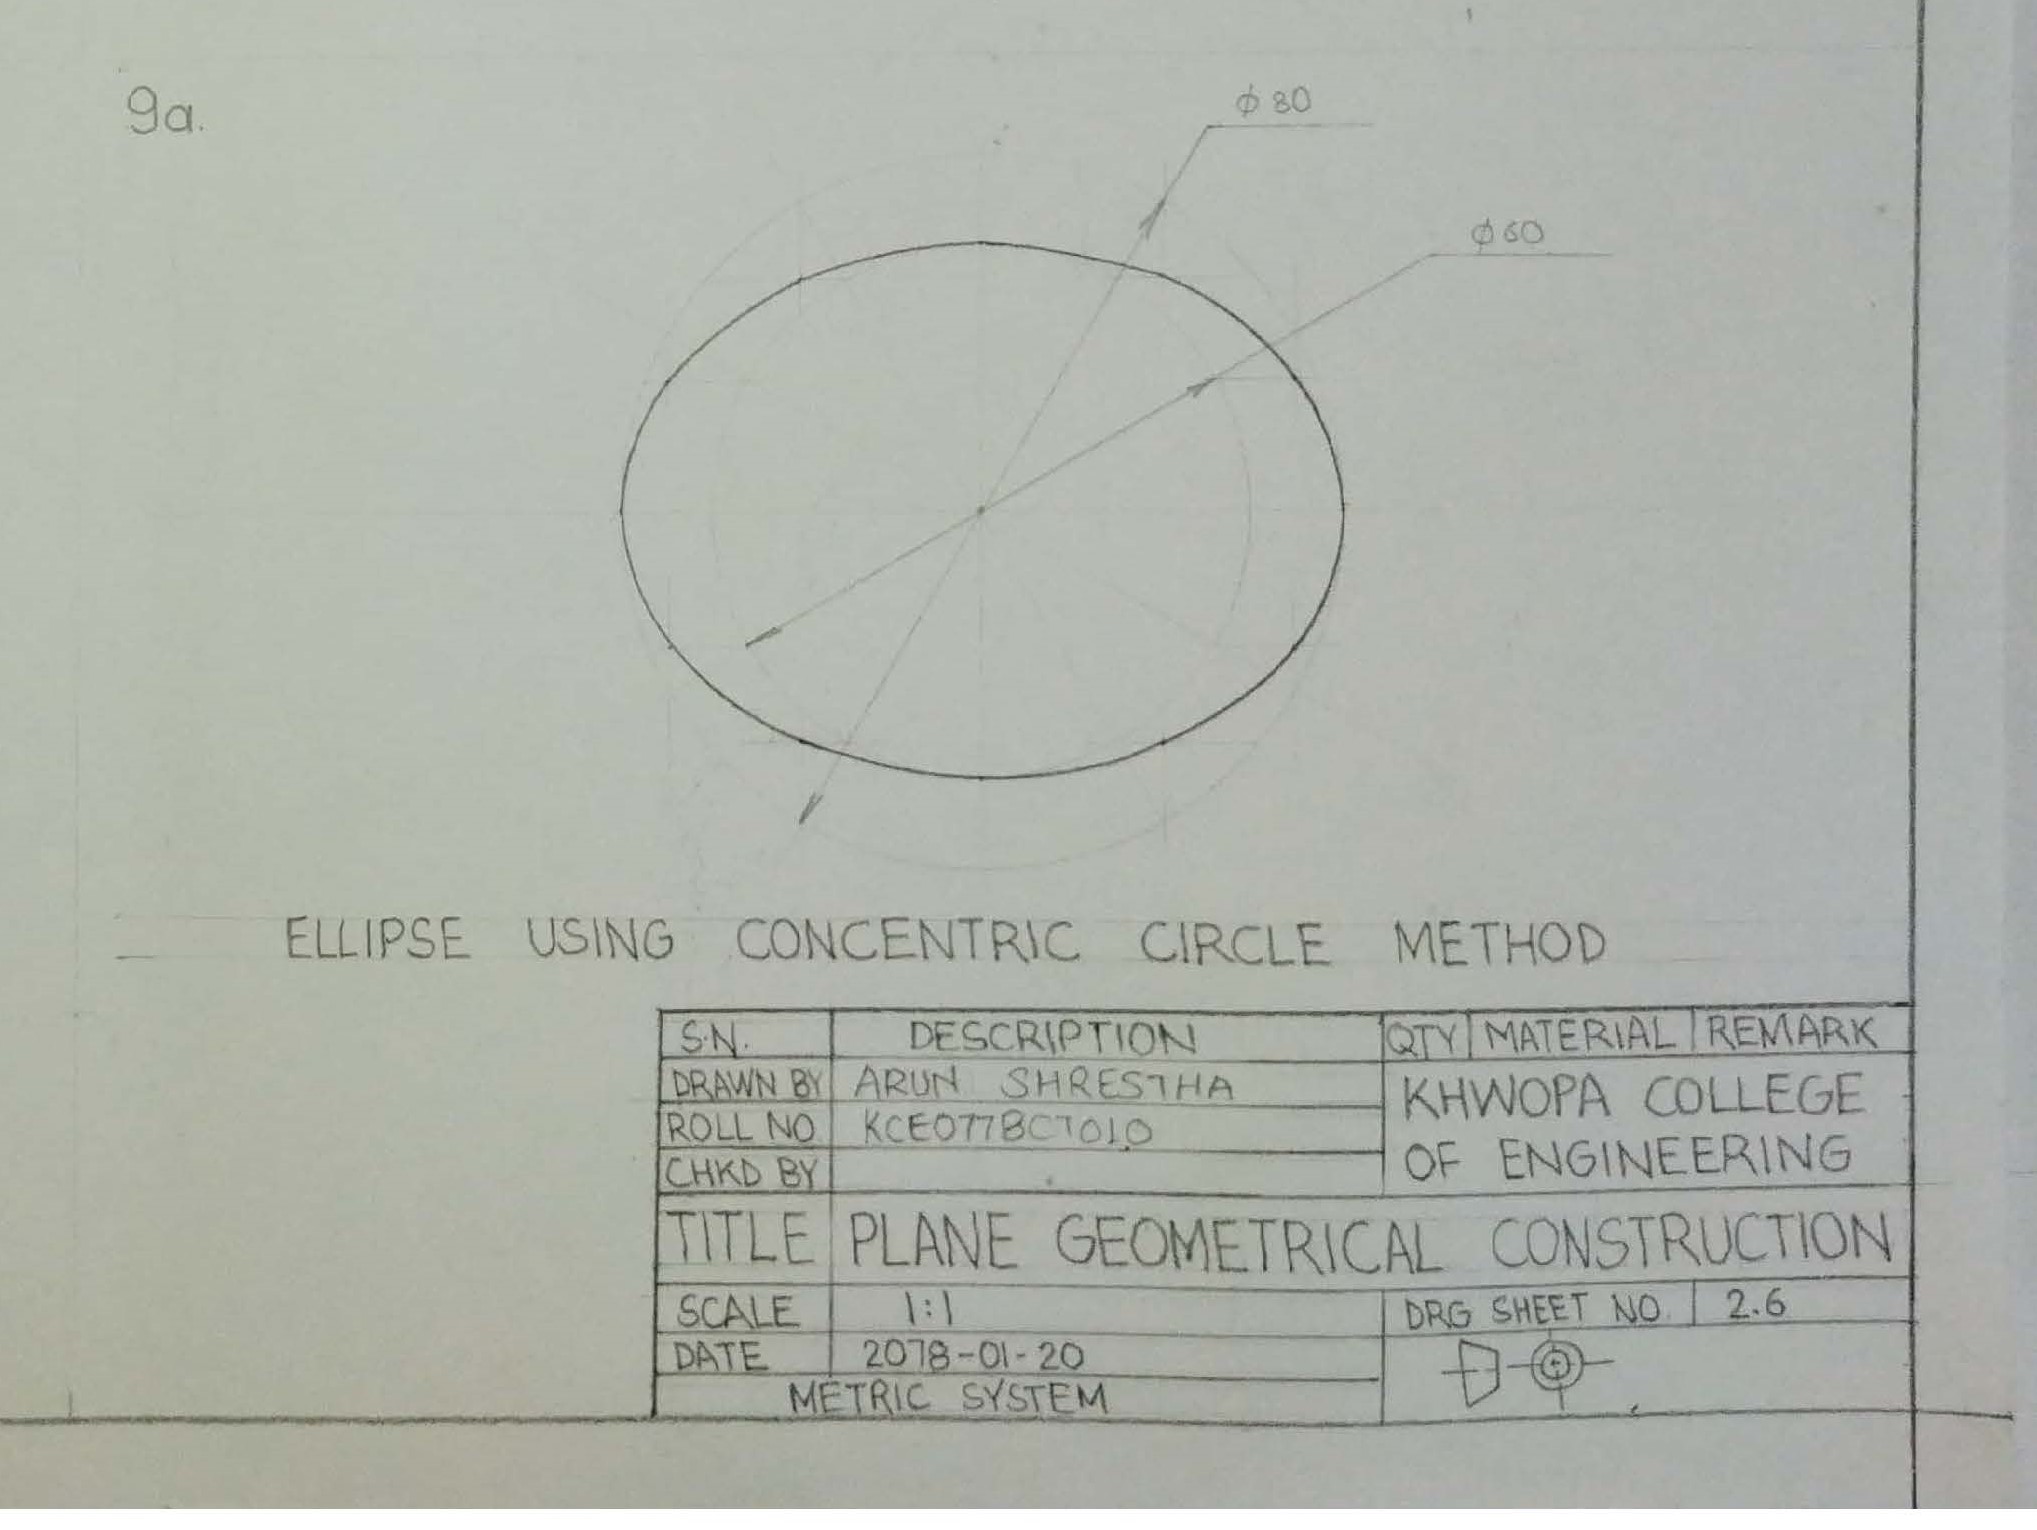 9a.
ϕ 80
ϕ 60
ELLIPSE USING CONCENTRIC CIRCLE METHOD
S.N. DESCRIPTION QTY MATERIAL REMARK
DRAWN BY ARUN SHRESTHA
KHWOPA COLLEGE
ROLL NO KCE077BCT010
OF ENGINEERING
CHKD BY
TITLE PLANE GEOMETRICAL CONSTRUCTION
SCALE 1:1 DRG SHEET NO. 2.6
DATE 2078-01-20
METRIC SYSTEM